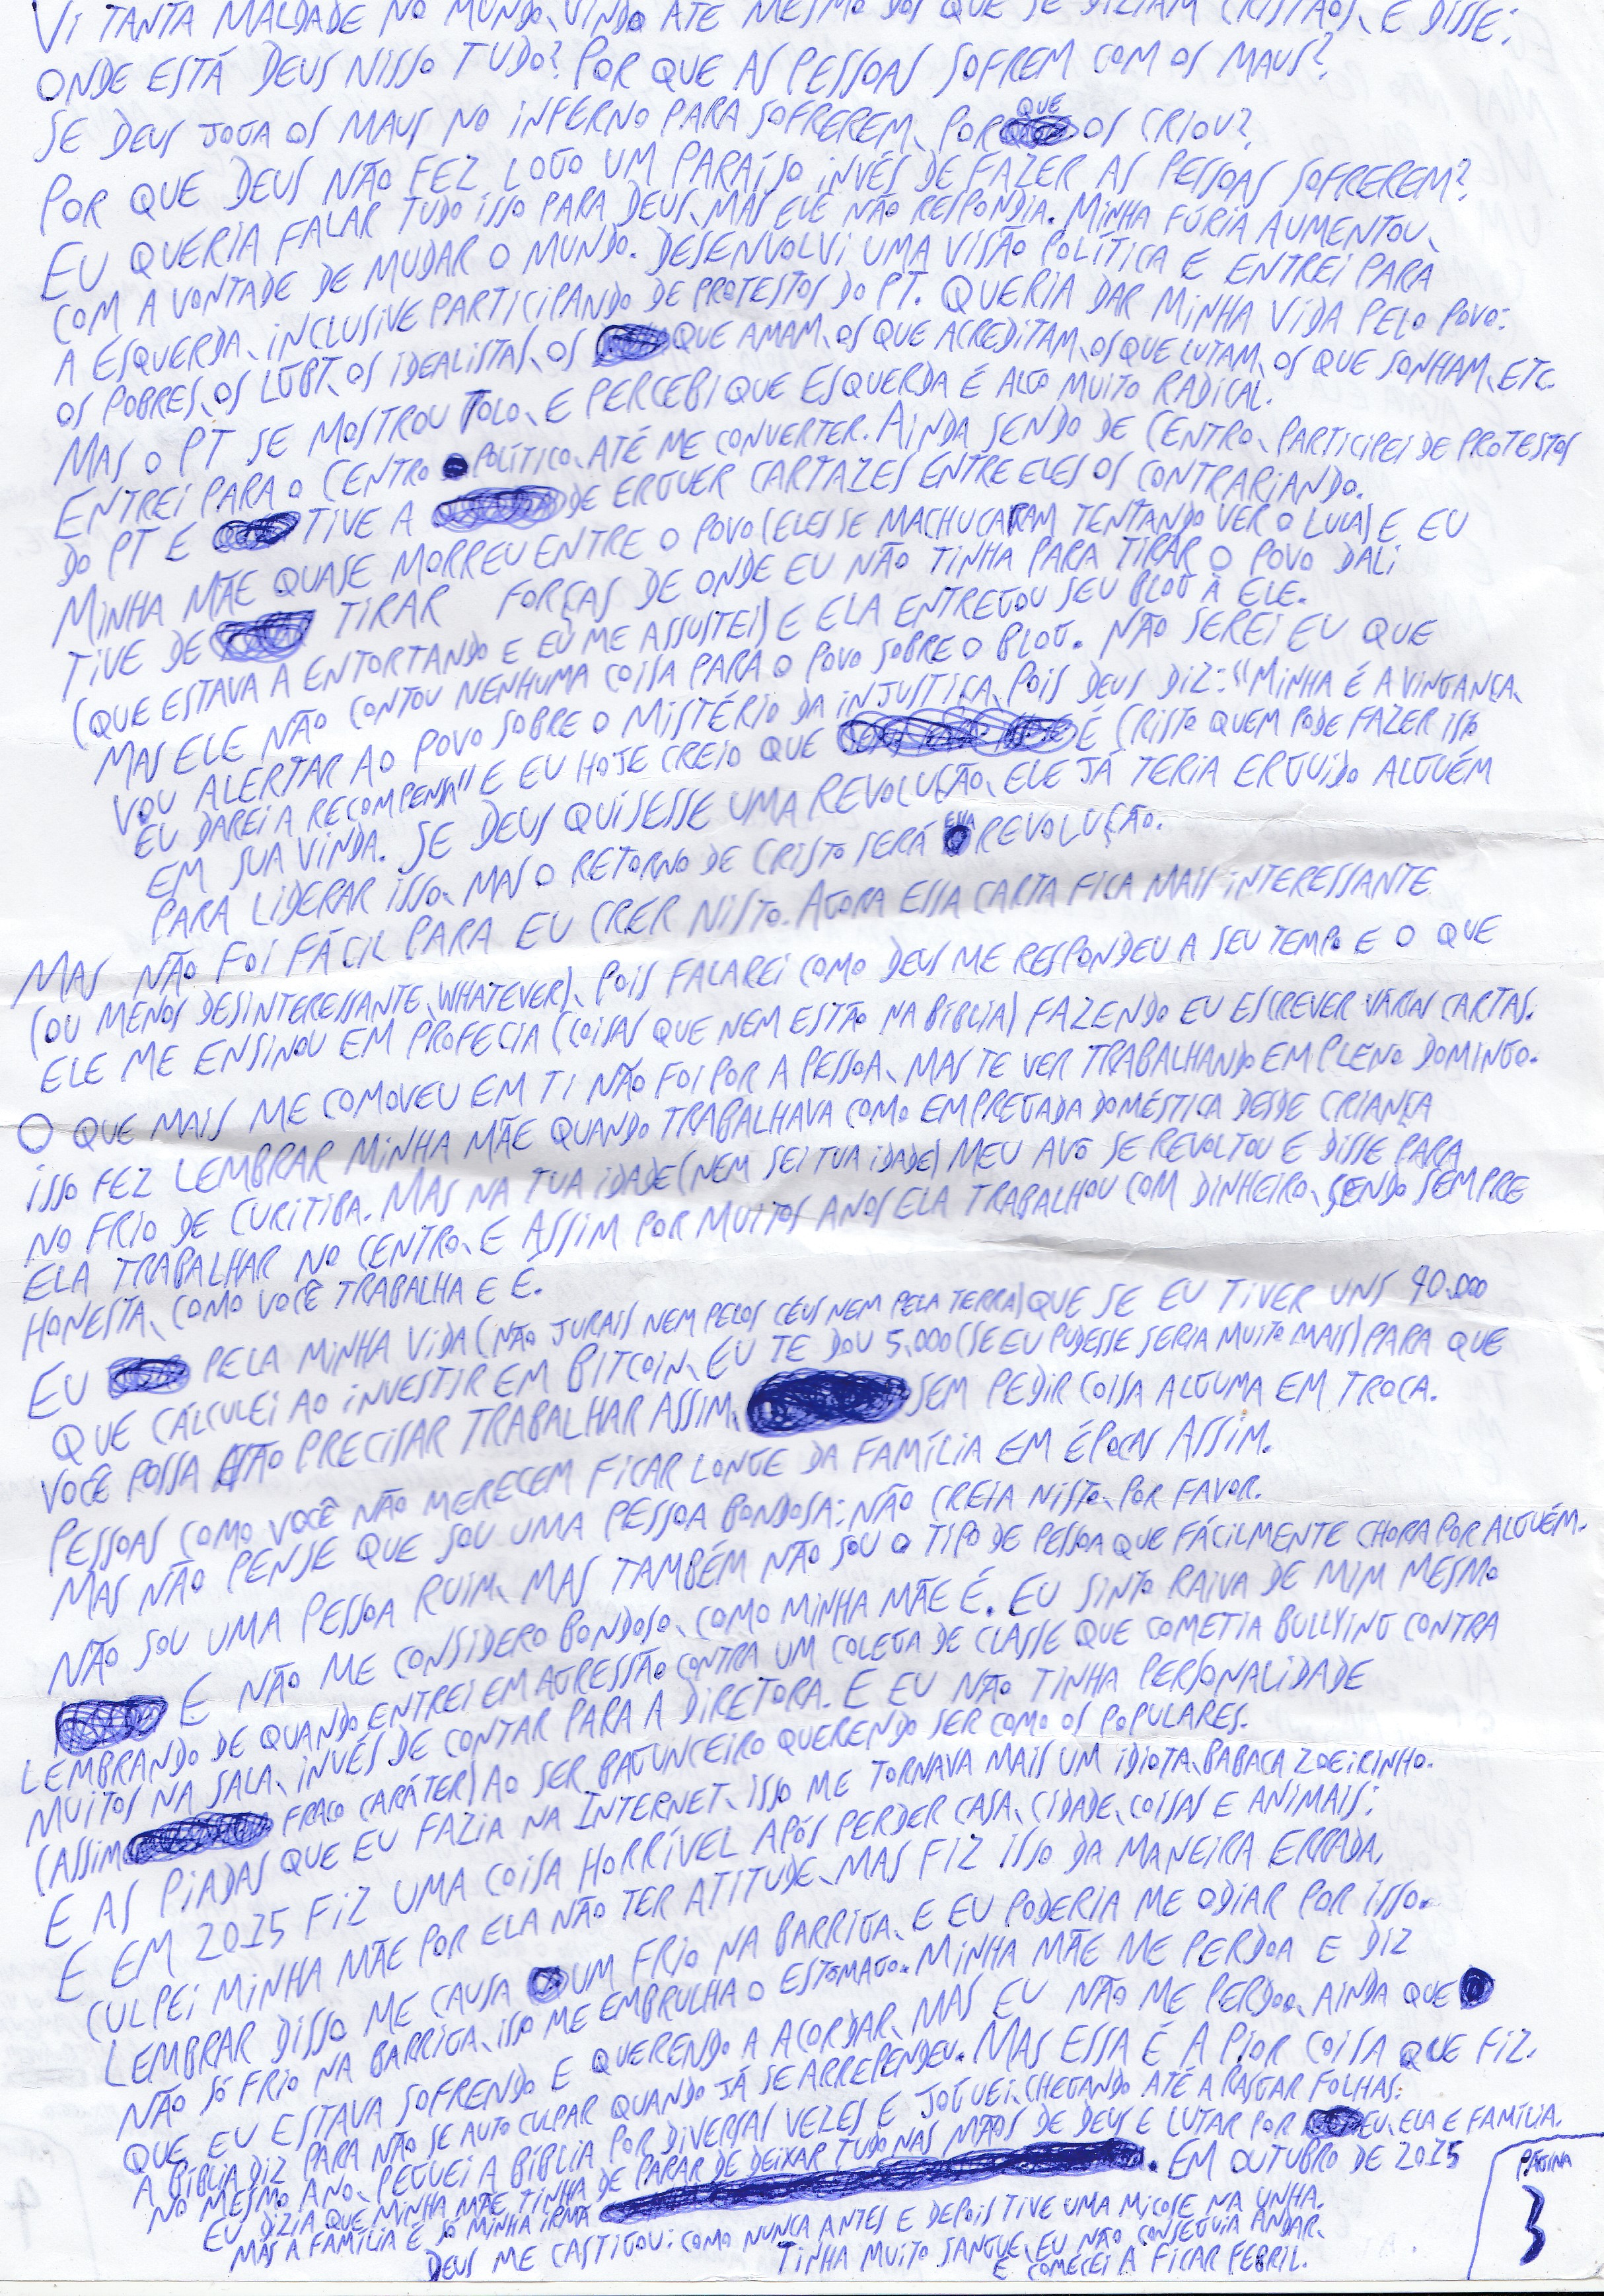 VI TANTA MALDADE NO MUNDO, VINDO ATÉ MESMO DOS QUE SE DIZIAM CRISTÃOS, E DISSE:
ONDE ESTÁ DEUS NISSO TUDO? POR QUE AS PESSOAS SOFREM COM OS MAUS?
SE DEUS JOGA OS MAUS NO INFERNO PARA SOFREREM, POR QUE OS CRIOU?
POR QUE DEUS NÃO FEZ LOGO UM PARAÍSO INVÉS DE FAZER AS PESSOAS SOFREREM?
EU QUERIA FALAR TUDO ISSO PARA DEUS, MAS ELE NÃO RESPONDIA. MINHA FÚRIA AUMENTOU,
COM A VONTADE DE MUDAR O MUNDO. DESENVOLVI UMA VISÃO POLÍTICA E ENTREI PARA
A ESQUERDA, INCLUSIVE PARTICIPANDO DE PROTESTOS DO PT. QUERIA DAR MINHA VIDA PELO POVO:
OS POBRES, OS LGBT, OS IDEALISTAS, OS QUE AMAM, OS QUE ACREDITAM, OS QUE LUTAM, OS QUE SONHAM, ETC.
MAS O PT SE MOSTROU TOLO, E PERCEBI QUE ESQUERDA É ALGO MUITO RADICAL.
ENTREI PARA O CENTRO POLÍTICO, ATÉ ME CONVERTER. AINDA SENDO DE CENTRO, PARTICIPEI DE PROTESTOS
DO PT E TIVE A DE ERGUER CARTAZES ENTRE ELES OS CONTRARIANDO.
MINHA MÃE QUASE MORREU ENTRE O POVO (ELES SE MACHUCARAM TENTANDO VER O LULA) E EU
TIVE DE TIRAR FORÇAS DE ONDE EU NÃO TINHA PARA TIRAR O POVO DALI
(QUE ESTAVA A ENTORTANDO E EU ME ASSUSTEI) E ELA ENTREGOU SEU BLOG À ELE.
MAS ELE NÃO CONTOU NENHUMA COISA PARA O POVO SOBRE O BLOG. NÃO SEREI EU QUE
VOU ALERTAR AO POVO SOBRE O MISTÉRIO DA INJUSTIÇA, POIS DEUS DIZ: "MINHA É A VINGANÇA,
EU DAREI A RECOMPENSA" E EU HOJE CREIO QUE É CRISTO QUEM PODE FAZER ISSO
EM SUA VINDA. SE DEUS QUISESSE UMA REVOLUÇÃO, ELE JÁ TERIA ERGUIDO ALGUÉM
PARA LIDERAR ISSO, MAS O RETORNO DE CRISTO SERÁ REVOLUÇÃO.
MAS NÃO FOI FÁCIL PARA EU CRER NISTO. AGORA ESSA CARTA FICA MAIS INTERESSANTE
(OU MENOS DESINTERESSANTE, WHATEVER), POIS FALAREI COMO DEUS ME RESPONDEU A SEU TEMPO E O QUE
ELE ME ENSINOU EM PROFECIA (COISAS QUE NEM ESTÃO NA BÍBLIA) FAZENDO EU ESCREVER VÁRIAS CARTAS.
O QUE MAIS ME COMOVEU EM TI NÃO FOI POR A PESSOA, MAS TE VER TRABALHANDO EM PLENO DOMINGO.
ISSO FEZ LEMBRAR MINHA MÃE QUANDO TRABALHAVA COMO EMPREGADA DOMÉSTICA DESDE CRIANÇA
NO FRIO DE CURITIBA. MAS NA TUA IDADE (NEM SEI TUA IDADE) MEU AVÔ SE REVOLTOU E DISSE PARA
ELA TRABALHAR NO CENTRO, E ASSIM POR MUITOS ANOS ELA TRABALHOU COM DINHEIRO, SENDO SEMPRE
HONESTA, COMO VOCÊ TRABALHA E É.
EU PELA MINHA VIDA (NÃO JURAIS NEM PELOS CÉUS NEM PELA TERRA) QUE SE EU TIVER UNS 90.000
QUE CÁLCULEI AO INVESTIR EM BITCOIN, EU TE DOU 5.000 (SE EU PUDESSE SERIA MUITO MAIS) PARA QUE
VOCÊ POSSA NÃO PRECISAR TRABALHAR ASSIM, SEM PEDIR COISA ALGUMA EM TROCA.
PESSOAS COMO VOCÊ NÃO MERECEM FICAR LONGE DA FAMÍLIA EM ÉPOCAS ASSIM.
MAS NÃO PENSE QUE SOU UMA PESSOA BONDOSA: NÃO CREIA NISTO, POR FAVOR.
NÃO SOU UMA PESSOA RUIM, MAS TAMBÉM NÃO SOU O TIPO DE PESSOA QUE FÁCILMENTE CHORA POR ALGUÉM.
E NÃO ME CONSIDERO BONDOSO, COMO MINHA MÃE É. EU SINTO RAIVA DE MIM MESMO
LEMBRANDO DE QUANDO ENTREI EM AGRESSÃO CONTRA UM COLEGA DE CLASSE QUE COMETIA BULLYING CONTRA
MUITOS NA SALA, INVÉS DE CONTAR PARA A DIRETORA. E EU NÃO TINHA PERSONALIDADE
(ASSIM FRACO CARÁTER) AO SER BAGUNCEIRO QUERENDO SER COMO OS POPULARES.
E AS PIADAS QUE EU FAZIA NA INTERNET, ISSO ME TORNAVA MAIS UM IDIOTA, BABACA ZOEIRINHO.
E EM 2015 FIZ UMA COISA HORRÍVEL APÓS PERDER CASA, CIDADE, COISAS E ANIMAIS:
CULPEI MINHA MÃE POR ELA NÃO TER ATITUDE, MAS FIZ ISSO DA MANEIRA ERRADA.
LEMBRAR DISSO ME CAUSA UM FRIO NA BARRIGA, E EU PODERIA ME ODIAR POR ISSO.
NÃO SÓ FRIO NA BARRIGA, ISSO ME EMBRULHA O ESTOMAGO. MINHA MÃE ME PERDOA E DIZ
QUE EU ESTAVA SOFRENDO E QUERENDO A ACORDAR, MAS EU NÃO ME PERDOO, AINDA QUE
A BÍBLIA DIZ PARA NÃO SE AUTO CULPAR QUANDO JÁ SE ARREPENDEU. MAS ESSA É A PIOR COISA QUE FIZ.
NO MESMO ANO, PEGUEI A BÍBLIA POR DIVERSAS VEZES E JOGUEI, CHEGANDO ATÉ A RASGAR FOLHAS:
EU DIZIA QUE MINHA MÃE TINHA DE PARAR DE DEIXAR TUDO NAS MÃOS DE DEUS E LUTAR POR EU, ELA E FAMÍLIA.
MAS A FAMÍLIA É SÓ MINHA IRMÃ. EM OUTUBRO DE 2015
DEUS ME CASTIGOU: COMO NUNCA ANTES E DEPOIS TIVE UMA MICOSE NA UNHA.
TINHA MUITO SANGUE, EU NÃO CONSEGUIA ANDAR,
E COMECEI A FICAR FEBRIL.
PÁGINA
3